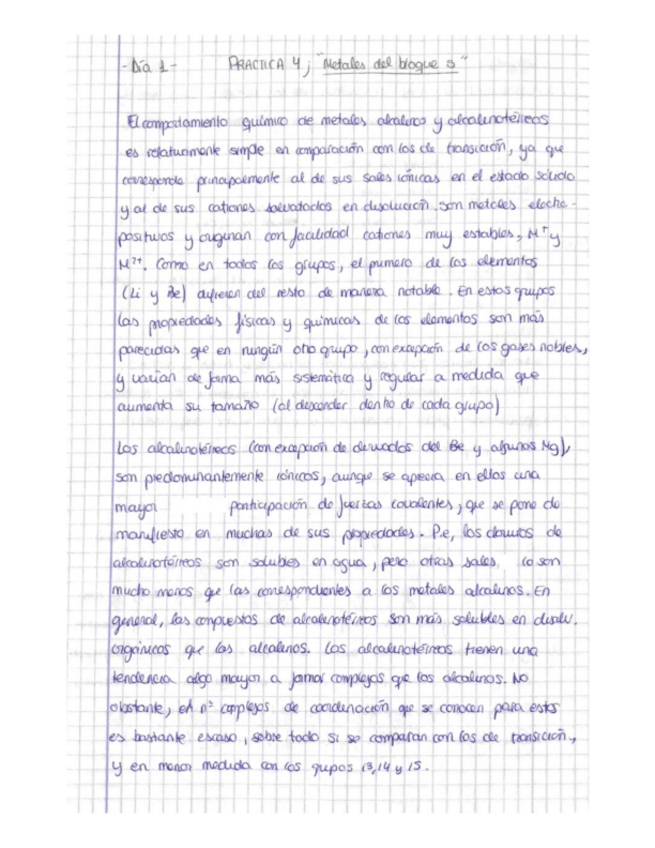 - Día 1 - PRACTICA 4; "Metales del bloque s"
El comportamiento químico de metales alcalinos y alcalinotérreos
es relativamente simple en comparación con los de transición, ya que
corresponde principalmente al de sus sales iónicas en el estado sólido
y al de sus cationes solvatados en disolución. Son metales electro-
positivos y originan con facilidad cationes muy estables, M⁺ y
M²⁺. Como en todos los grupos, el primero de los elementos
(Li y Be) difieren del resto de manera notable. En estos grupos
las propiedades físicas y químicas de los elementos son más
parecidas que en ningún otro grupo, con excepción de los gases nobles,
y varían de forma más sistemática y regular a medida que
aumenta su tamaño (al descender dentro de cada grupo)
Los alcalinotérreos (con excepción de derivados del Be y algunos Mg),
son predominantemente iónicos, aunque se aprecia en ellos una
mayor participación de fuerzas covalentes, que se pone de
manifiesto en muchas de sus propiedades. P.e, los cloruros de
alcalinotérreos son solubles en agua, pero otras sales lo son
mucho menos que las correspondientes a los metales alcalinos. En
general, los compuestos de alcalinotérreos son más solubles en disolv.
orgánicos que los alcalinos. Los alcalinotérreos tienen una
tendencia algo mayor a formar complejos que los alcalinos. No
obstante, el nº complejos de coordinación que se conocen para estos
es bastante escaso, sobre todo si se comparan con los de transición,
y en menor medida con los grupos 13, 14 y 15.